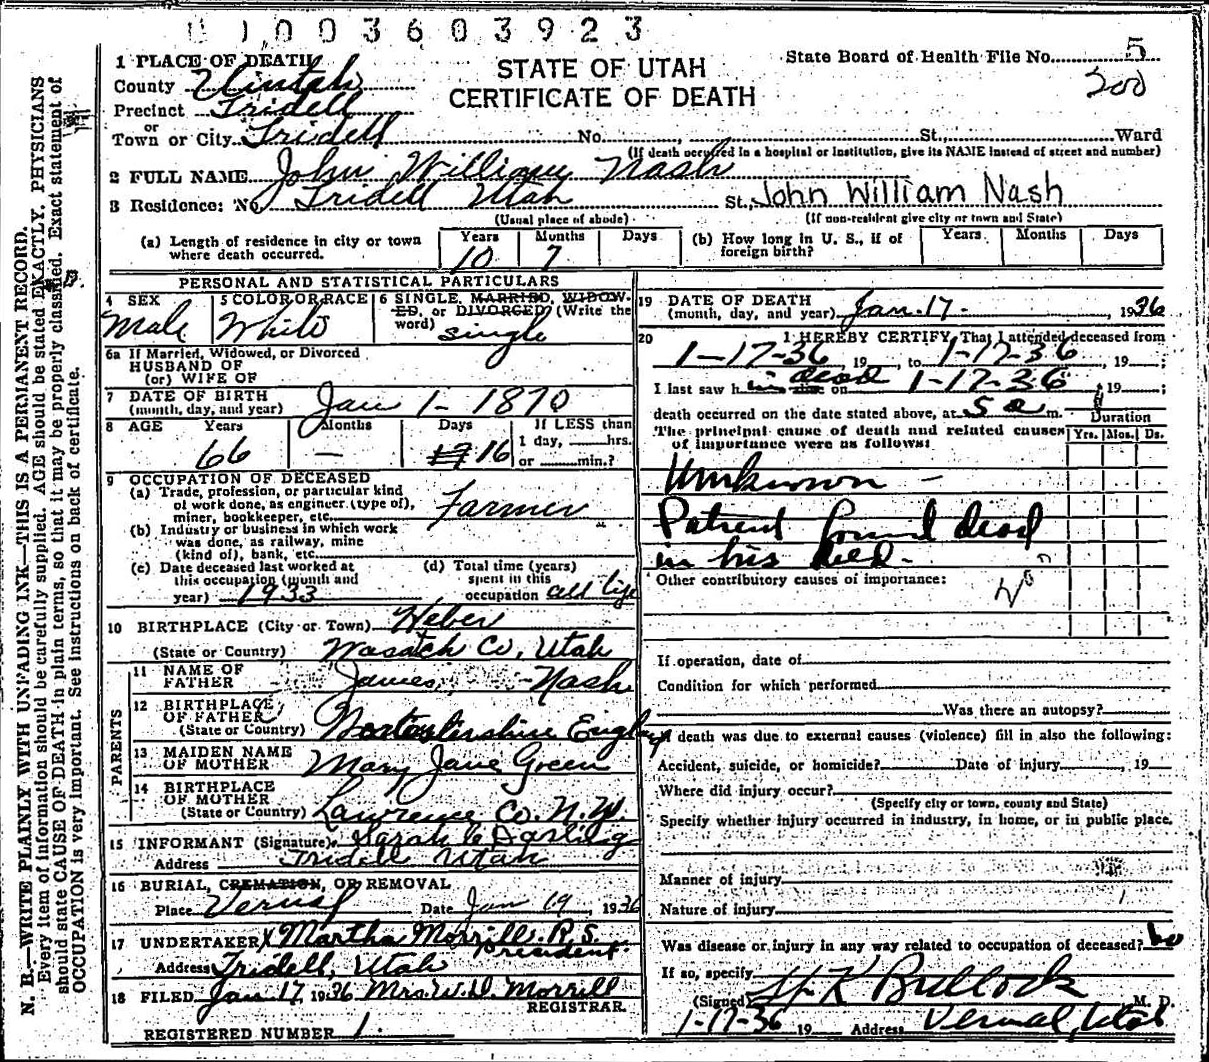 01003603923
State Board of Health File No. 5
200
STATE OF UTAH
CERTIFICATE OF DEATH
1 PLACE OF DEATH
County Uintah
Precinct Tridell
Town or City Tridell No. St., Ward
(If death occurred in a hospital or institution, give its NAME instead of street and number)
2 FULL NAME John William Nash
3 Residence: No. Tridell Utah St., John William Nash
(Usual place of abode) (If non-resident give city or town and State)
(a) Length of residence in city or town where death occurred. Years 10 Months 7 Days
(b) How long in U. S., if of foreign birth? Years Months Days
PERSONAL AND STATISTICAL PARTICULARS
4 SEX Male
5 COLOR OR RACE White
6 SINGLE, MARRIED, WIDOWED, or DIVORCED (Write the word) single
6a If Married, Widowed, or Divorced
HUSBAND OF
(or) WIFE OF
7 DATE OF BIRTH
(month, day, and year) Jan 1 - 1870
8 AGE Years 66 Months — Days 16 If LESS than 1 day, hrs. or min.?
9 OCCUPATION OF DECEASED
(a) Trade, profession, or particular kind
of work done, as engineer (type of),
miner, bookkeeper, etc. Farmer
(b) Industry or business in which work
was done, as railway, mine
(kind of), bank, etc.
(c) Date deceased last worked at
this occupation (month and
year) 1933
(d) Total time (years)
spent in this
occupation all life
10 BIRTHPLACE (City or Town) Heber
(State or Country) Wasatch Co, Utah
PARENTS
11 NAME OF FATHER James Nash
12 BIRTHPLACE OF FATHER
(State or Country) England
13 MAIDEN NAME OF MOTHER Mary Jane Green
14 BIRTHPLACE OF MOTHER
(State or Country) Lawrence Co. N.Y.
15 INFORMANT (Signature) Sarah C Darling
Address Tridell Utah
16 BURIAL, CREMATION, OR REMOVAL
Place Vernal Date Jan 19, 1936
17 UNDERTAKER x Martha Morrill R.S. President
Address Tridell, Utah
18 FILED Jan 17 1936 Mrs. W. D. Morrill
REGISTRAR.
REGISTERED NUMBER 1.
19 DATE OF DEATH
(month, day, and year) Jan. 17- , 1936
20 I HEREBY CERTIFY, That I attended deceased from
1-17-36, 19 , to 1-17-36, 19 ;
I last saw him dead on 1-17-36, 19 ;
death occurred on the date stated above, at 5 a m. Duration
The principal cause of death and related causes
of importance were as follows: Yrs. Mos. Ds.
Unknown -
Patient found dead
in his bed.
Other contributory causes of importance:
If operation, date of
Condition for which performed
Was there an autopsy?
If death was due to external causes (violence) fill in also the following:
Accident, suicide, or homicide? Date of injury , 19
Where did injury occur?
(Specify city or town, county and State)
Specify whether injury occurred in industry, in home, or in public place.
Manner of injury
Nature of injury
Was disease or injury in any way related to occupation of deceased? no
If so, specify
(Signed) H K Bullock M. D.
1-17-36 19 Address Vernal, Utah
N. B.—WRITE PLAINLY WITH UNFADING INK—THIS IS A PERMANENT RECORD.
Every item of information should be carefully supplied. AGE should be stated EXACTLY. PHYSICIANS
should state CAUSE OF DEATH in plain terms, so that it may be properly classified. Exact statement of
OCCUPATION is very important. See instructions on back of certificate.